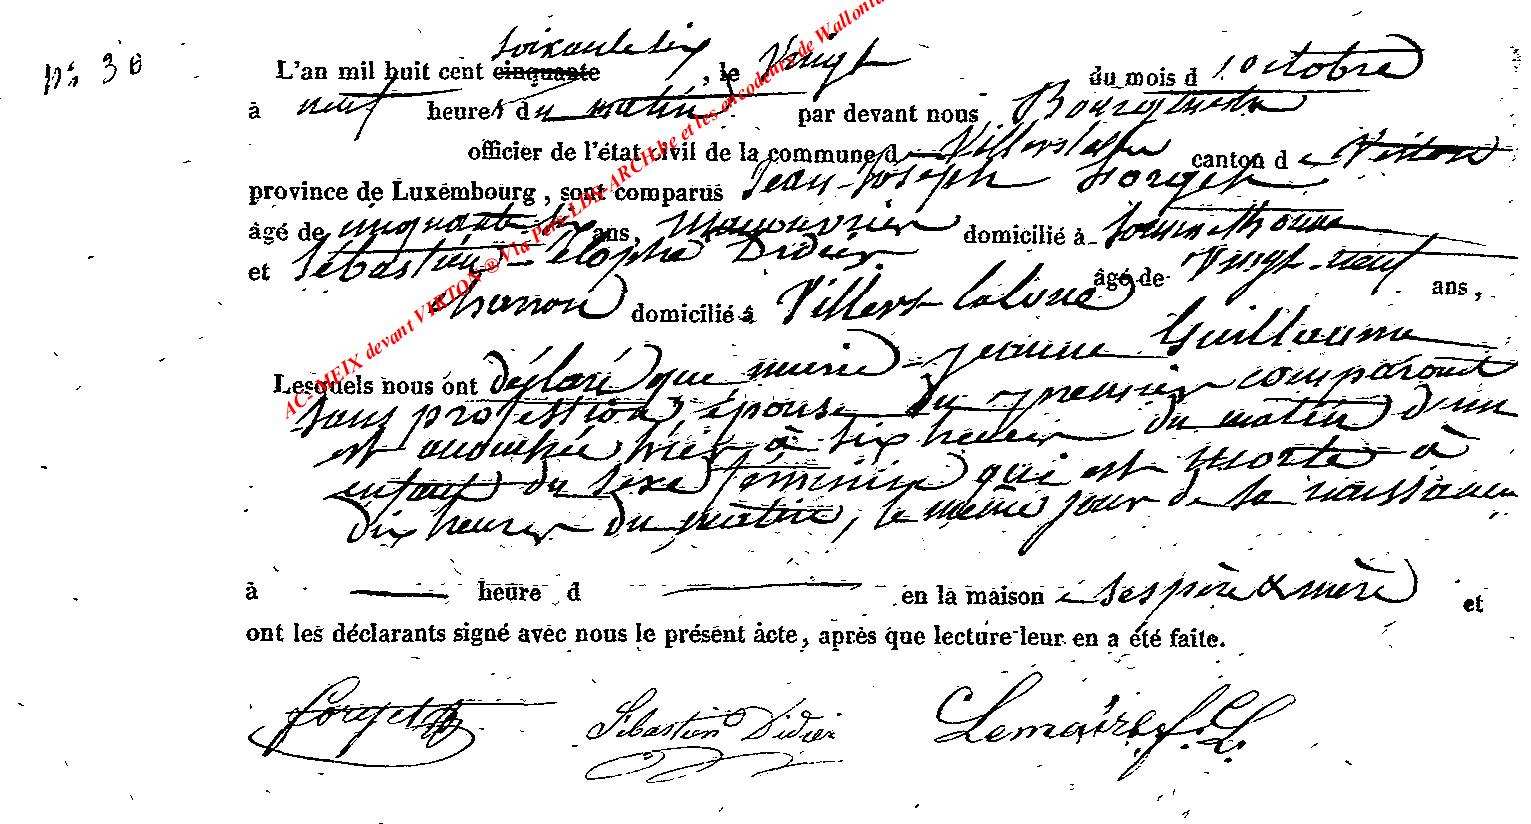 N° 30
soixante six
L'an mil huit cent cinquante , le Vingt du mois d'octobre
à neuf heures du matin par devant nous Bourguignon
officier de l'état civil de la commune de Villers laloue canton de Virton
province de Luxembourg, sont comparus Jean-Joseph Forget
âgé de cinquante six ans, Manouvrier domicilié à Sommethonne
et Sébastien-Elophe Didier âgé de Vingt-neuf ans,
charron domicilié à Villers laloue
Lesquels nous ont déclaré que marie-jeanne Guillaume
sans profession, épouse du premier comparant
est accouchée hier à six heures du matin d'un
enfant du sexe féminin qui est morte à
dix heures du matin, le même jour de sa naissance
à — heure d — en la maison de ses père & mère et
ont les déclarants signé avec nous le présent acte, après que lecture leur en a été faite.
Forget Sébastien Didier Lemaire f.L.
AC. MEIX devant VIRTON ® Via Pays LDS-ARCH.be et les encodeurs de Wallonie